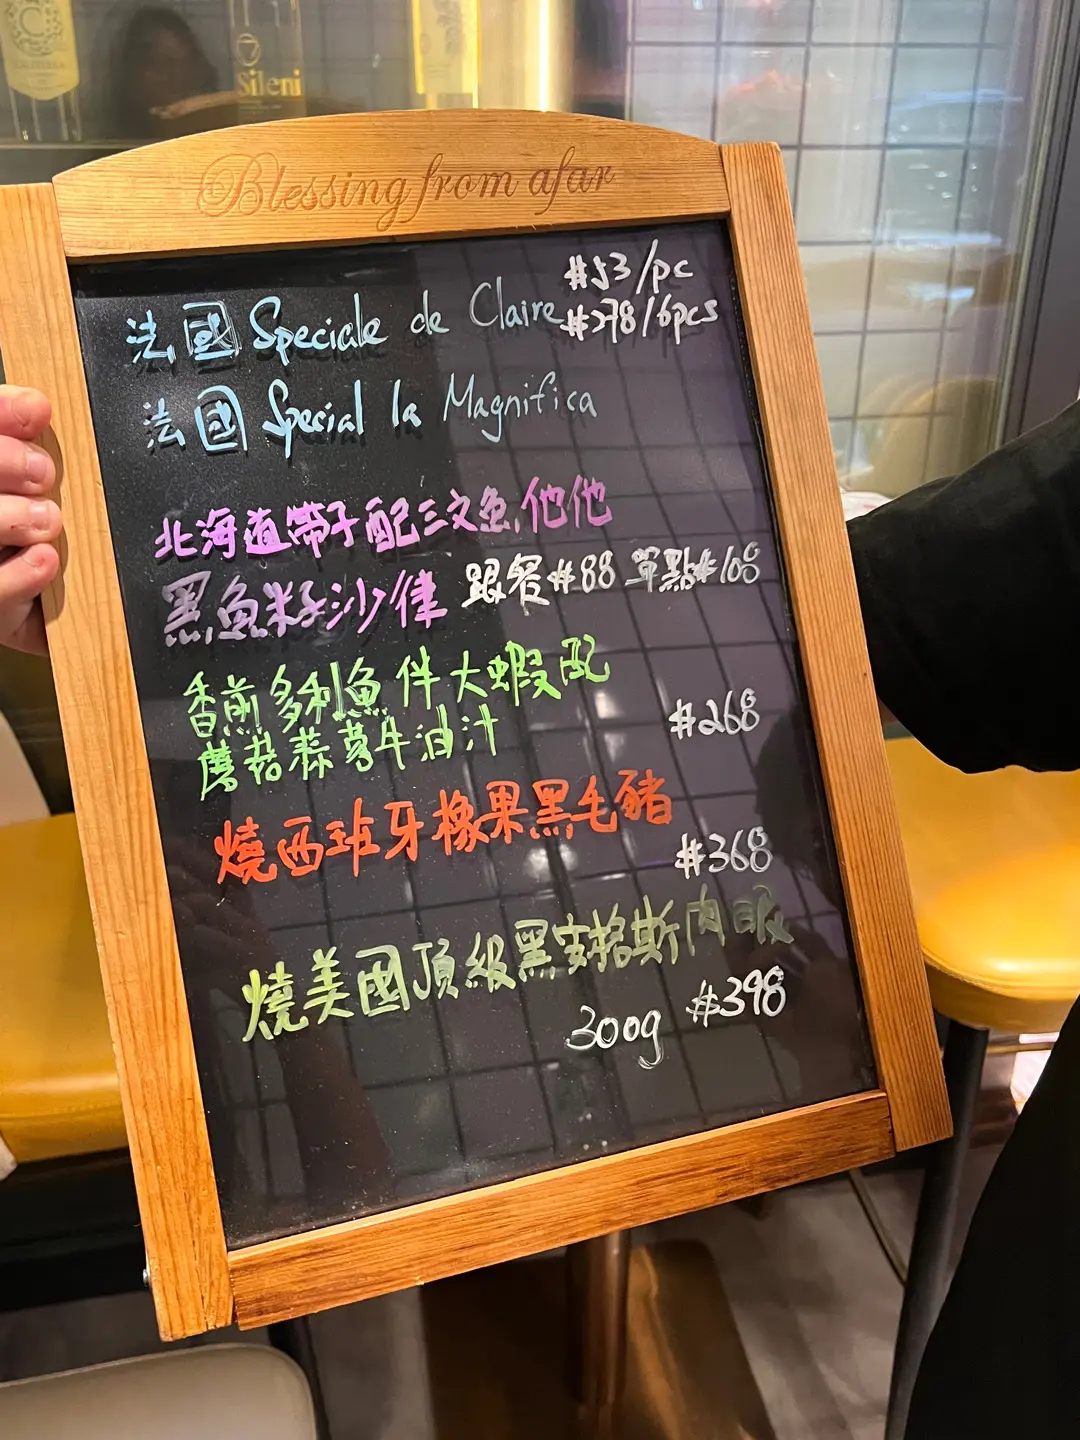 Sileni
Blessing from afar
法國 Speciale de Claire #53/pc
#278/6pcs
法國 Special la Magnifica
北海道帶子配三文魚,他他
黑魚籽沙律 跟餐#88 單點#108
香煎多利魚伴大蝦配
蘑菇蒜蓉牛油汁 #268
燒西班牙橡果黑毛豬
#368
燒美國頂級黑安格斯肉眼
300g #398